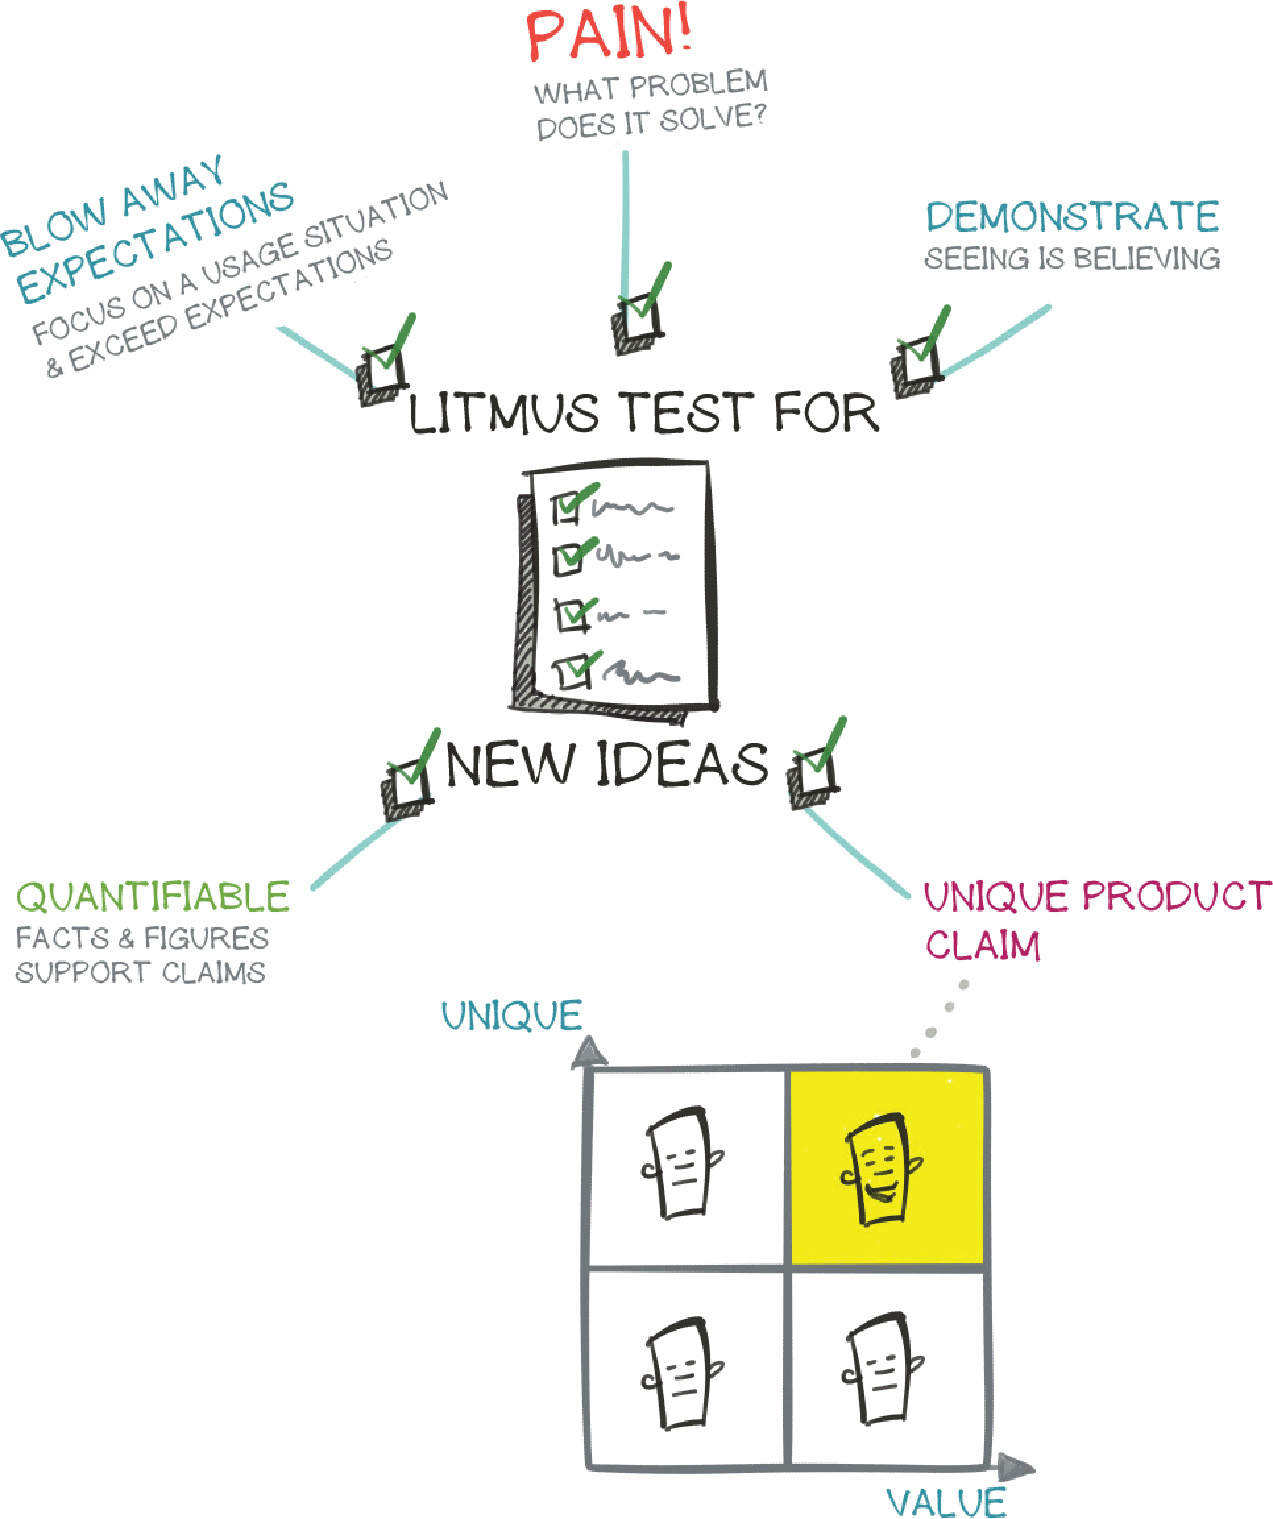 PAIN!
WHAT PROBLEM
DOES IT SOLVE?
BLOW AWAY
EXPECTATIONS
FOCUS ON A USAGE SITUATION
& EXCEED EXPECTATIONS
DEMONSTRATE
SEEING IS BELIEVING
LITMUS TEST FOR
NEW IDEAS
QUANTIFIABLE
FACTS & FIGURES
SUPPORT CLAIMS
UNIQUE PRODUCT
CLAIM
UNIQUE
VALUE